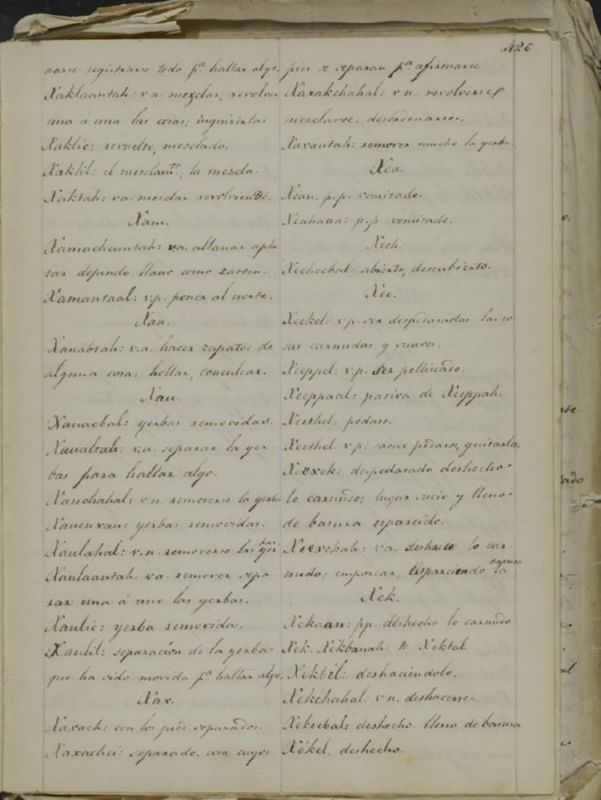 426
narse registrarse todo pa. hallar algo.
Xaklaantah: v.a. mezclar, revolver
una á una las cosas; inquirirlas
Xaklic: revuelto, mezclado.
Xaklil: el mezclamto., la mezcla.
Xaktah: va. mezclar revolviendo.
Xam.
Xamachcuntah: va. allanar aplas
tar dejando llano como sarten.
Xamantaal: v.p. poner al norte.
Xan.
Xanabtah: v.a. hacer zapatos de
alguna cosa: hollar, conculcar.
Xau.
Xauacbal: yerbas removidas.
Xauabtah: v.a. separar la yer-
bas para hallar algo.
Xauchahal: v.n. removerse la yerba
Xauenxau: yerbas removidas.
Xaulahal: v.n. removerse las yer
bas
Xaulaantah: va. remover sepa
rar una á uno las yerbas.
Xaulic: yerba removida.
Xaulil: separación de la yerba
que ha sido movida pa. hallar algo.
Xax.
Xaxach: con los piés separados.
Xaxachci: separado, cosa cuyos
pies se separan pa. afirmarse
Xaxakchahal: v.n. revolverse,
mezclarse, desordenarse.
Xaxautah: remover mucho la yerba.
Xea.
Xean. p.p. vomitado.
Xeahaan: p.p. vomitado.
Xech.
Xechecbal: abierto, descubierto.
Xee.
Xeekel: v.p. ser despedazadas las co-
sas carnudas y suave.
Xeeppel: v.p. ser pellizcado.
Xeeppaal: pasiva de Xeeppah.
Xeethel: pedazo.
Xeethel v.p. sacar pedazos, quitarla.
Xeexek: despedasado deshecho
lo carnudo; lugar sucio y lleno
de basura esparcida.
Xeexekah: va. deshacer lo car-
nudo; emporcar, esparciendo la
basura
Xek.
Xekaan: pp. deshecho lo carnudo
Xek. Xekbanah: to Xektal
Xekbil: deshaciéndolo.
Xekchahal: v.n. deshacerse.
Xekecbal: deshecho. lleno de basura
Xékel. deshecho.